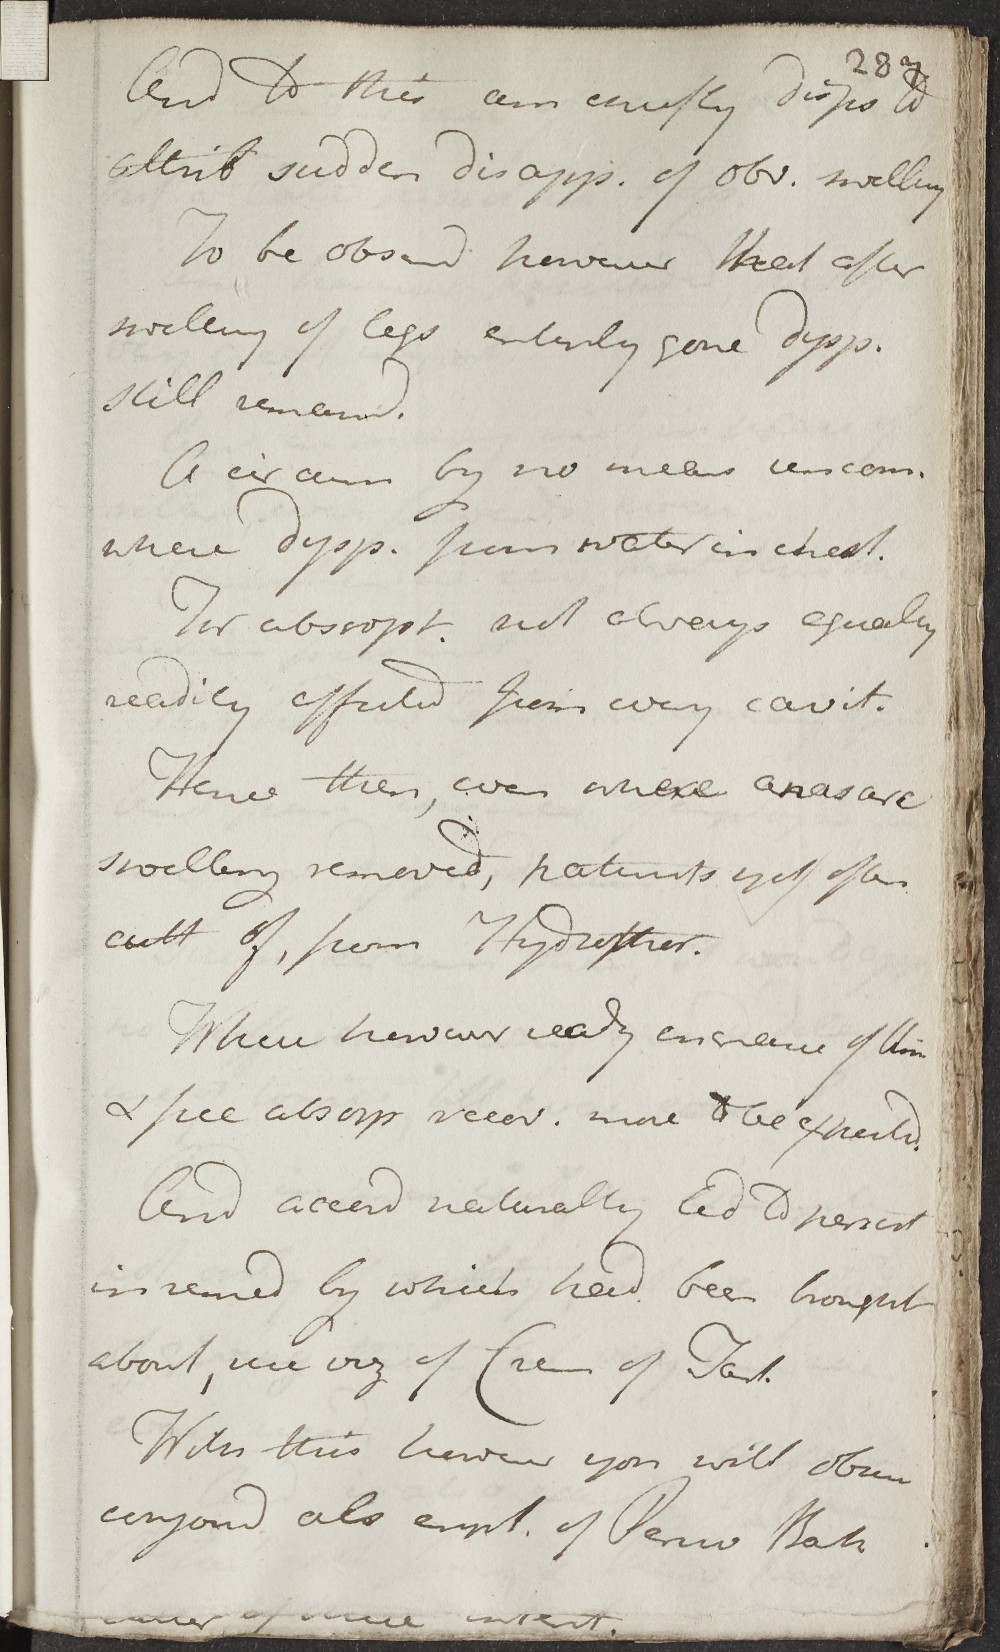 287
And to this am chiefly dispos to
attrib sudden disapp. of obv. swelling
To be observd however that after
swelling of legs entirely gone dysp.
still remaind.
A circum by no means uncom.
where dysp. from water in chest.
For absorpt. not always equally
readily effected from every cavit.
Hence then, even where anasarc
swelling removed, patients yet often
cutt of, from Hydrothor.
When however ready increase of Urin
& free absorp recov. more to be expected.
And accord naturally led to persist
in remed by which had been brought
about, use viz of Crem of Tart.
With this however you will observ
conjoind als empt. of Peruv Bark
intent.